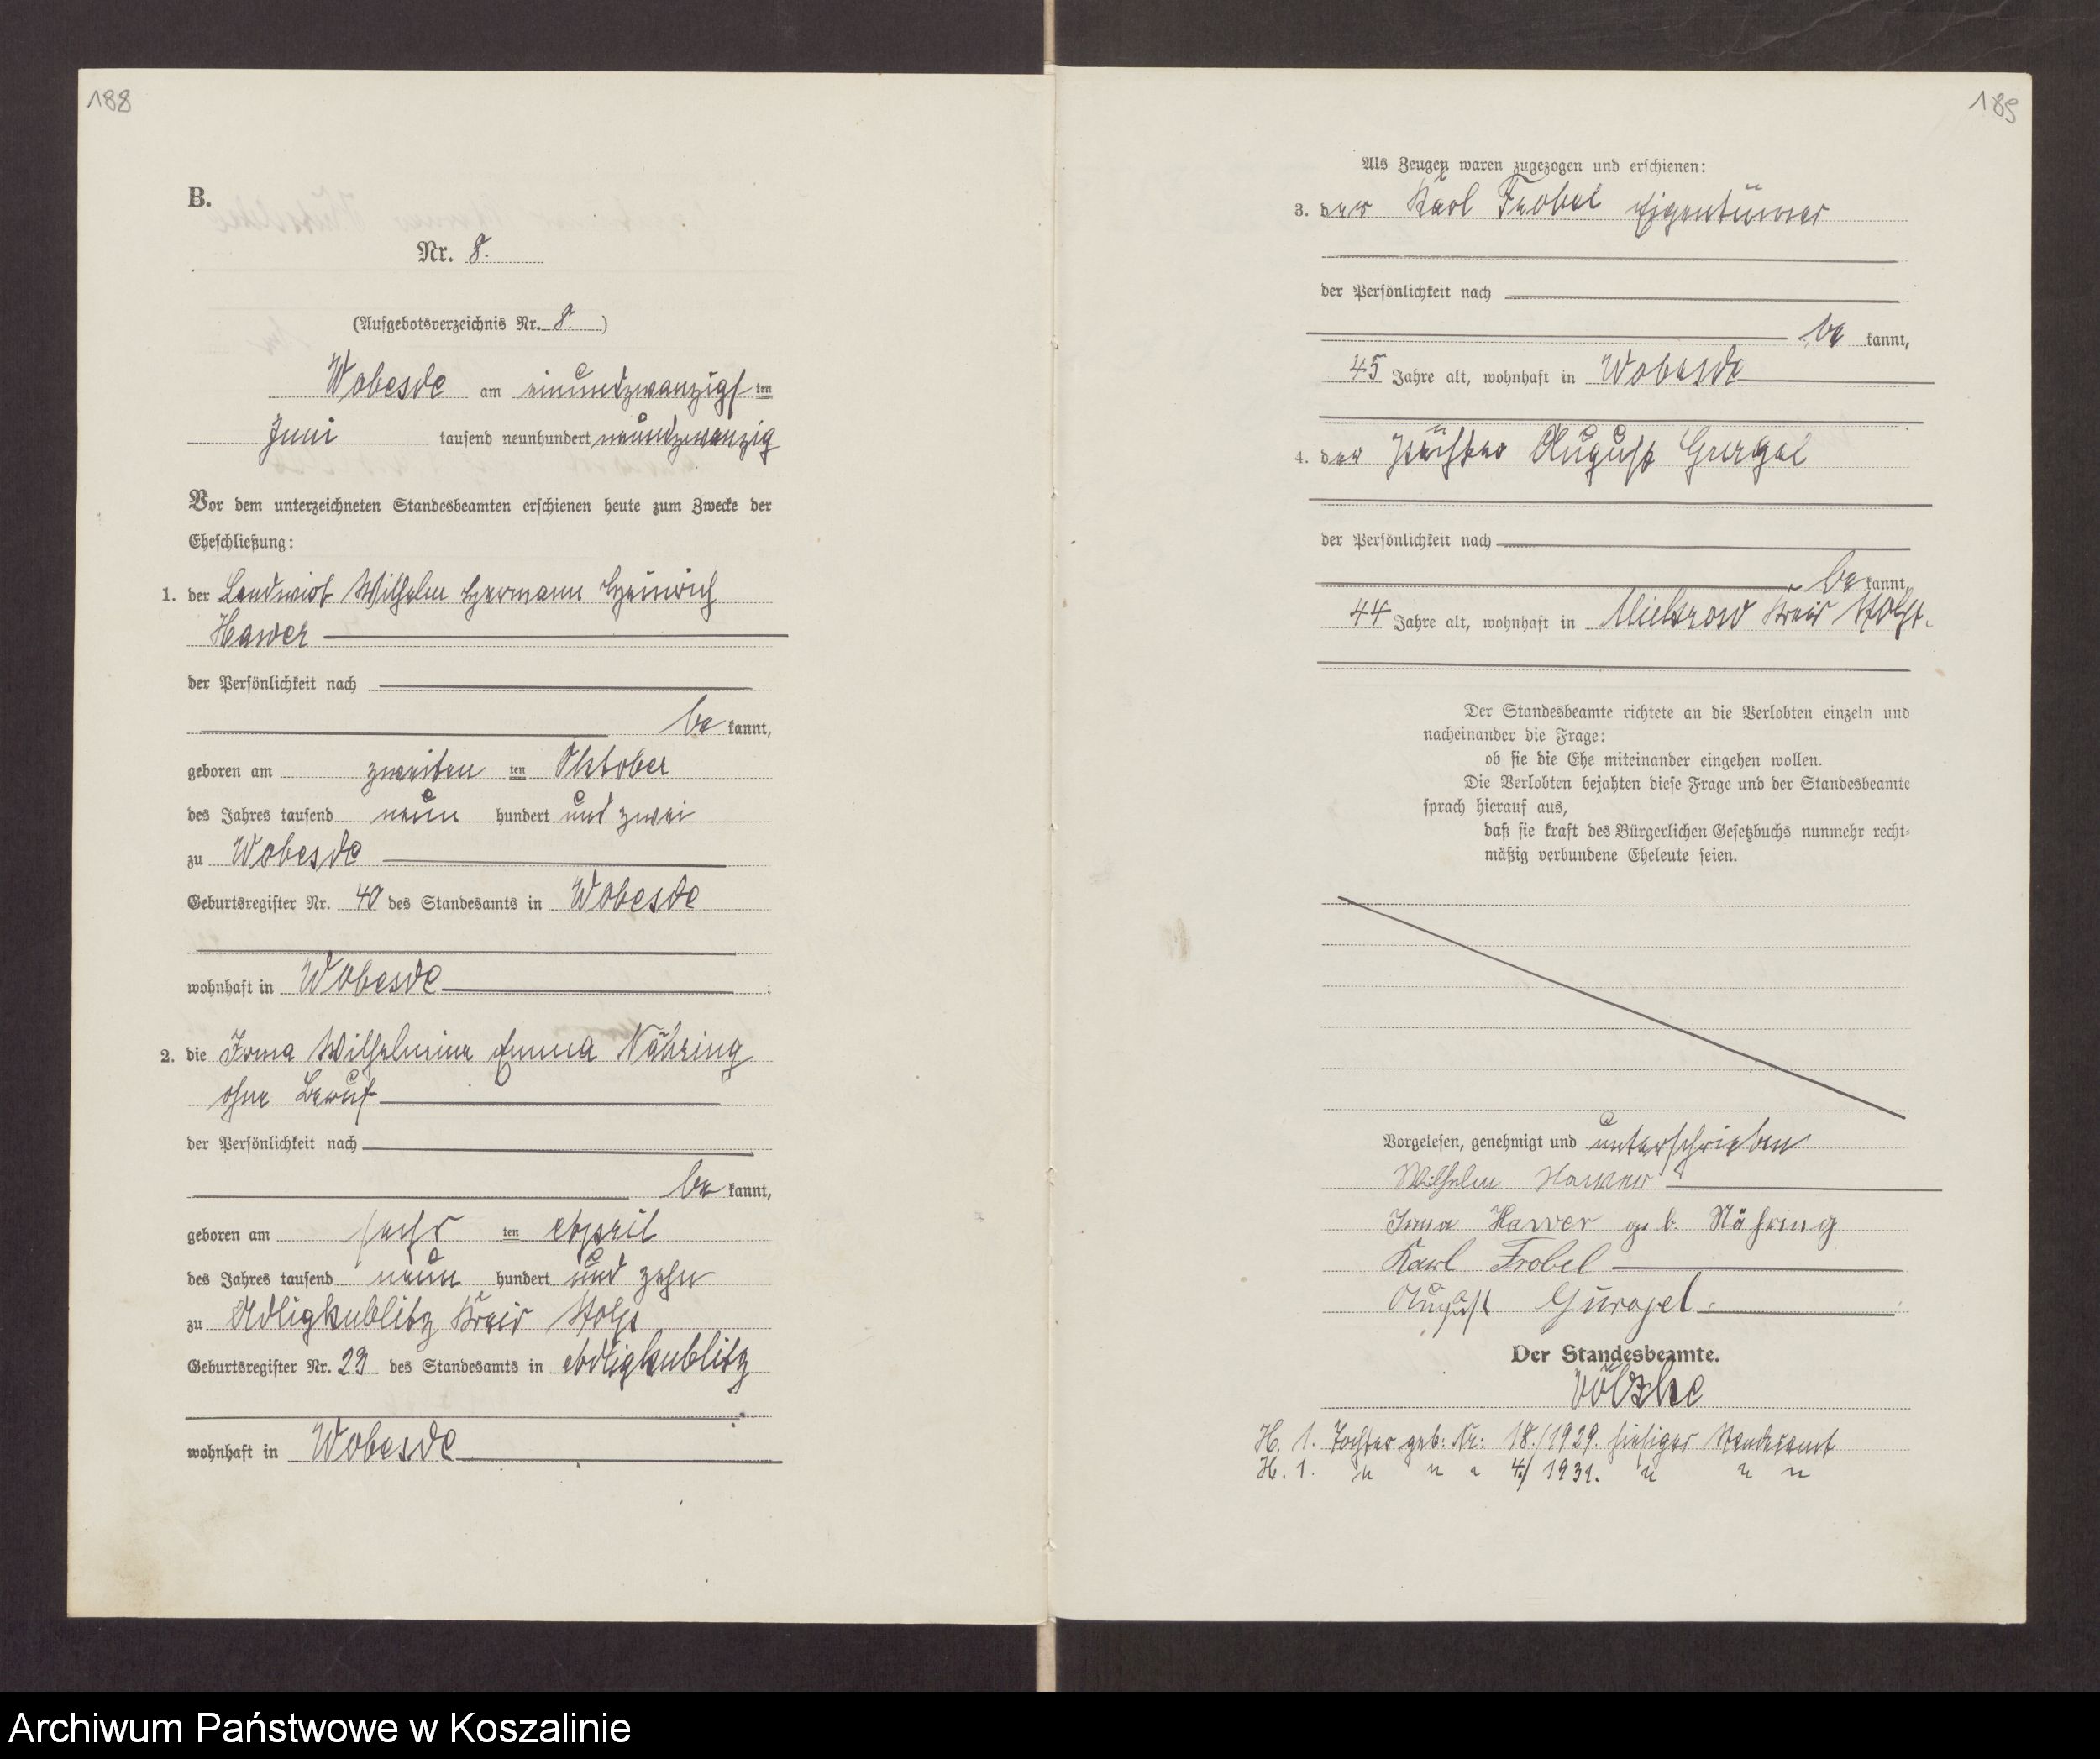 188
B.
Nr. 8.
(Aufgebotsverzeichnis Nr. 8.)
Wobesde am einundzwanzigsten
Juni tausend neunhundert neunundzwanzig
Vor dem unterzeichneten Standesbeamten erschienen heute zum Zwecke der
Eheschließung:
1. der Landwirt Wilhelm Hermann Heinrich
Hawer
der Persönlichkeit nach
be kannt,
geboren am zweiten ten Oktober
des Jahres tausend neun hundert und zwei
zu Wobesde
Geburtsregister Nr. 40 des Standesamts in Wobesde
wohnhaft in Wobesde ;
2. die Irma Wilhelmine Emma Nähring
ohne Beruf
der Persönlichkeit nach
be kannt,
geboren am sechs ten April
des Jahres tausend neun hundert und zehn
zu Adligkublitz Kreis Stolp
Geburtsregister Nr. 23 des Standesamts in Adligkublitz
wohnhaft in Wobesde
189
Als Zeugen waren zugezogen und erschienen:
3. der Karl Frobel Eigentümer
der Persönlichkeit nach
be kannt,
45 Jahre alt, wohnhaft in Wobesde
4. der Pächter August Gurgel
der Persönlichkeit nach
be kannt,
44 Jahre alt, wohnhaft in Kreis Stolp.
Der Standesbeamte richtete an die Verlobten einzeln und
nacheinander die Frage:
ob sie die Ehe miteinander eingehen wollen.
Die Verlobten bejahten diese Frage und der Standesbeamte
sprach hierauf aus,
daß sie kraft des Bürgerlichen Gesetzbuchs nunmehr recht-
mäßig verbundene Eheleute seien.
Vorgelesen, genehmigt und unterschrieben
Wilhelm Hawer
Irma Hawer geb. Nähring
Karl Frobel
August Gurgel.
Der Standesbeamte.
Völzke
H. 1. Tochter geb: Nr: 18./1929. hiesiger Standesamt
H. 1. " " " 4./1931. " " "
Archiwum Państwowe w Koszalinie